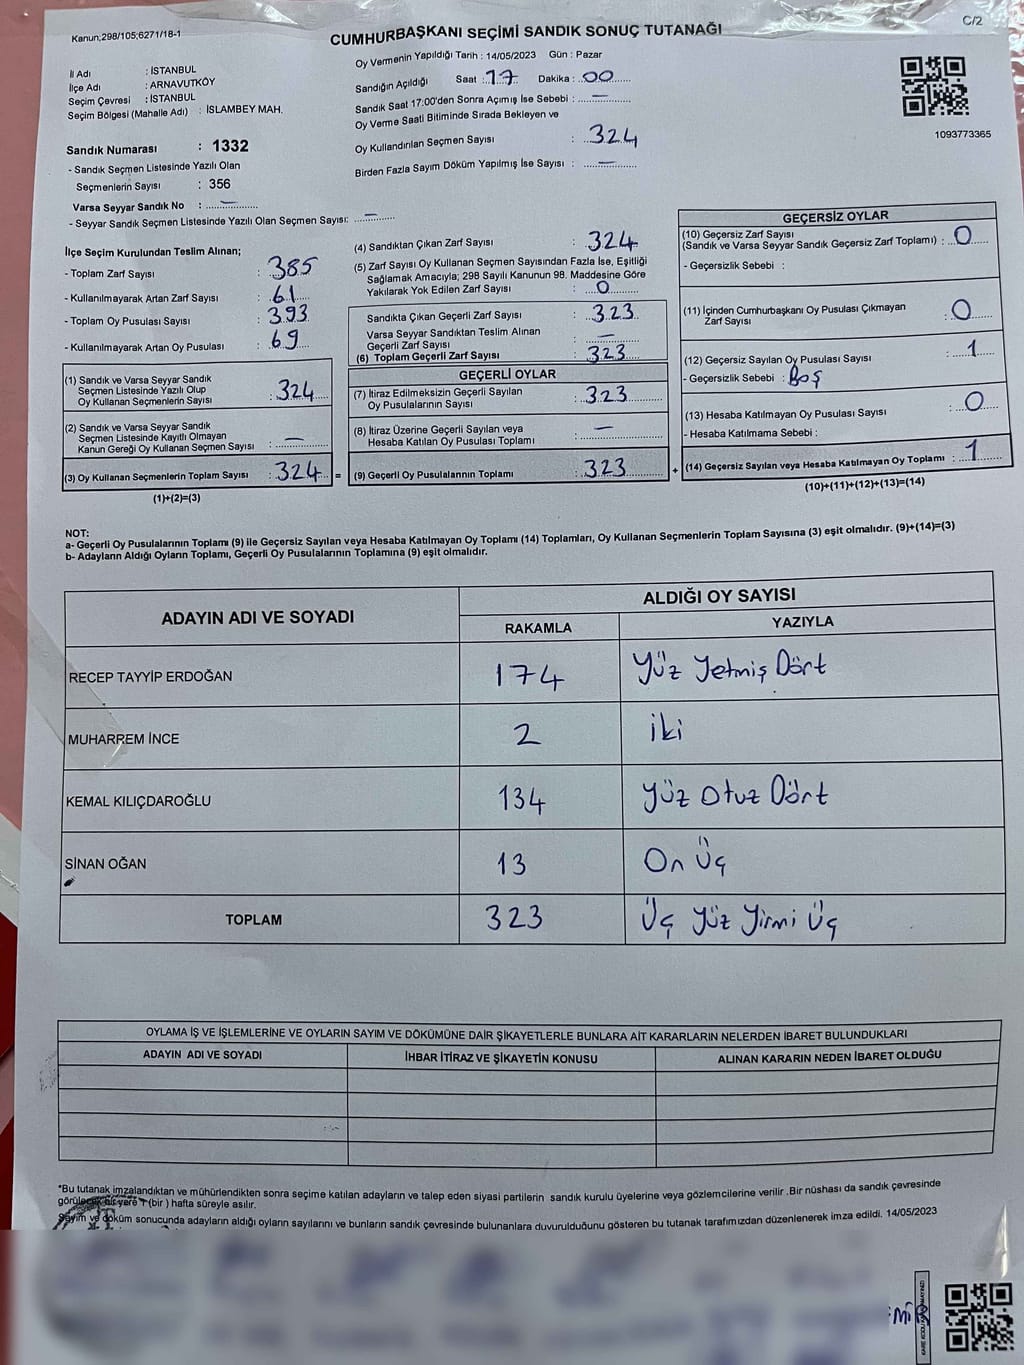 Kanun;298/105;6271/18-1
CUMHURBAŞKANI SEÇİMİ SANDIK SONUÇ TUTANAĞI
C/2
İl Adı : İSTANBUL
İlçe Adı : ARNAVUTKÖY
Seçim Çevresi : İSTANBUL
Seçim Bölgesi (Mahalle Adı) : İSLAMBEY MAH.
Sandık Numarası : 1332
- Sandık Seçmen Listesinde Yazılı Olan
Seçmenlerin Sayısı : 356
Varsa Seyyar Sandık No : —
- Seyyar Sandık Seçmen Listesinde Yazılı Olan Seçmen Sayısı: —
Oy Vermenin Yapıldığı Tarih : 14/05/2023 Gün : Pazar
Sandığın Açıldığı Saat : 17 Dakika : 00
Sandık Saat 17:00'den Sonra Açımış İse Sebebi : —
Oy Verme Saati Bitiminde Sırada Bekleyen ve
Oy Kullandırılan Seçmen Sayısı : 324
Birden Fazla Sayım Döküm Yapılmış İse Sayısı : —
1093773365
İlçe Seçim Kurulundan Teslim Alınan;
- Toplam Zarf Sayısı : 385
- Kullanılmayarak Artan Zarf Sayısı : 61
- Toplam Oy Pusulası Sayısı : 393
- Kullanılmayarak Artan Oy Pusulası : 69
(1) Sandık ve Varsa Seyyar Sandık
Seçmen Listesinde Yazılı Olup
Oy Kullanan Seçmenlerin Sayısı : 324
(2) Sandık ve Varsa Seyyar Sandık
Seçmen Listesinde Kayıtlı Olmayan
Kanun Gereği Oy Kullanan Seçmen Sayısı : —
(3) Oy Kullanan Seçmenlerin Toplam Sayısı : 324 =
(1)+(2)=(3)
(4) Sandıktan Çıkan Zarf Sayısı : 324
(5) Zarf Sayısı Oy Kullanan Seçmen Sayısından Fazla İse, Eşitliği
Sağlamak Amacıyla; 298 Sayılı Kanunun 98. Maddesine Göre
Yakılarak Yok Edilen Zarf Sayısı : 0
Sandıkta Çıkan Geçerli Zarf Sayısı : 323
Varsa Seyyar Sandıktan Teslim Alınan
Geçerli Zarf Sayısı : —
(6) Toplam Geçerli Zarf Sayısı : 323
GEÇERLİ OYLAR
(7) İtiraz Edilmeksizin Geçerli Sayılan
Oy Pusulalarının Sayısı : 323
(8) İtiraz Üzerine Geçerli Sayılan veya
Hesaba Katılan Oy Pusulası Toplamı : —
(9) Geçerli Oy Pusulalarının Toplamı : 323 +
GEÇERSİZ OYLAR
(10) Geçersiz Zarf Sayısı
(Sandık ve Varsa Seyyar Sandık Geçersiz Zarf Toplamı) : 0
- Geçersizlik Sebebi :
(11) İçinden Cumhurbaşkanı Oy Pusulası Çıkmayan
Zarf Sayısı : 0
(12) Geçersiz Sayılan Oy Pusulası Sayısı : 1
- Geçersizlik Sebebi : BOŞ
(13) Hesaba Katılmayan Oy Pusulası Sayısı : 0
- Hesaba Katılmama Sebebi :
(14) Geçersiz Sayılan veya Hesaba Katılmayan Oy Toplamı : 1
(10)+(11)+(12)+(13)=(14)
NOT:
a- Geçerli Oy Pusulalarının Toplamı (9) ile Geçersiz Sayılan veya Hesaba Katılmayan Oy Toplamı (14) Toplamları, Oy Kullanan Seçmenlerin Toplam Sayısına (3) eşit olmalıdır. (9)+(14)=(3)
b- Adayların Aldığı Oyların Toplamı, Geçerli Oy Pusulalarının Toplamına (9) eşit olmalıdır.
ADAYIN ADI VE SOYADI
ALDIĞI OY SAYISI
RAKAMLA YAZIYLA
RECEP TAYYİP ERDOĞAN 174 Yüz Yetmiş Dört
MUHARREM İNCE 2 iki
KEMAL KILIÇDAROĞLU 134 Yüz Otuz Dört
SİNAN OĞAN 13 On Üç
TOPLAM 323 Üç Yüz Yirmi Üç
OYLAMA İŞ VE İŞLEMLERİNE VE OYLARIN SAYIM VE DÖKÜMÜNE DAİR ŞİKAYETLERLE BUNLARA AİT KARARLARIN NELERDEN İBARET BULUNDUKLARI
ADAYIN ADI VE SOYADI İHBAR İTİRAZ VE ŞİKAYETİN KONUSU ALINAN KARARIN NEDEN İBARET OLDUĞU
*Bu tutanak imzalandıktan ve mühürlendikten sonra seçime katılan adayların ve talep eden siyasi partilerin sandık kurulu üyelerine veya gözlemcilerine verilir .Bir nüshası da sandık çevresinde
görülecek bir yere 1 (bir ) hafta süreyle asılır.
Sayım ve döküm sonucunda adayların aldığı oyların sayılarını ve bunların sandık çevresinde bulunanlara duyurulduğunu gösteren bu tutanak tarafımızdan düzenlenerek imza edildi. 14/05/2023